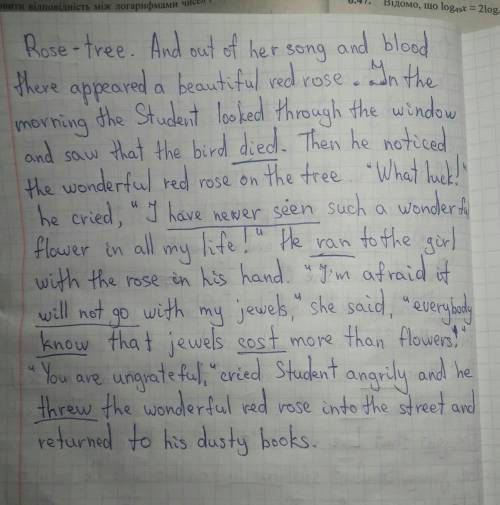 овити відповідність між логарифмами чисел
6.47. Відомо, що log₄₉x = 2log
Rose-tree. And out of her song and blood
there appeared a beautiful red rose. In the
morning the Student looked through the window
and saw that the bird died. Then he noticed
the wonderful red rose on the tree. "What luck!"
he cried, "I have newer seen such a wonderful
flower in all my life!" He ran to the girl
with the rose in his hand. "I'm afraid it
will not go with my jewels," she said, "everybody
know that jewels cost more than flowers!"
"You are ungrateful," cried Student angrily and he
threw the wonderful red rose into the street and
returned to his dusty books.